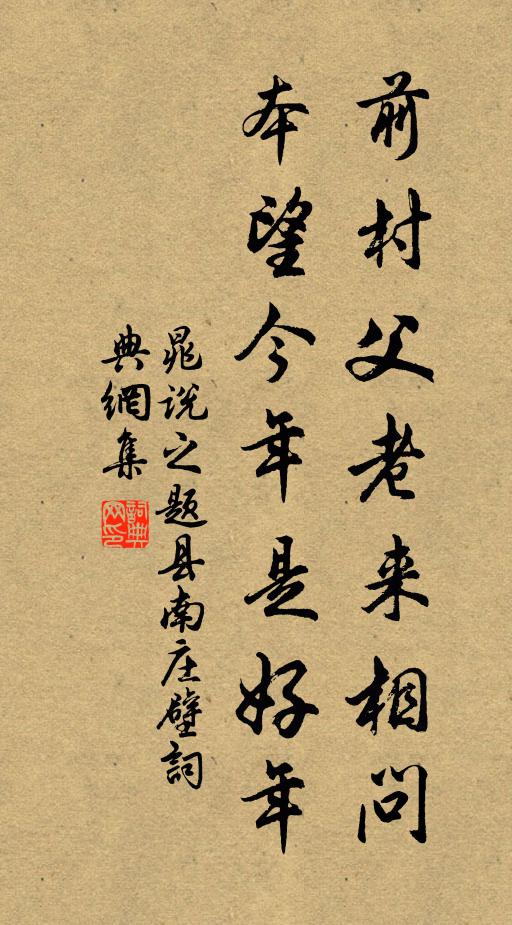 前村父老来相問
本望今年是好年
晁说之题县南庄壁詞
典網集
詞典
网印